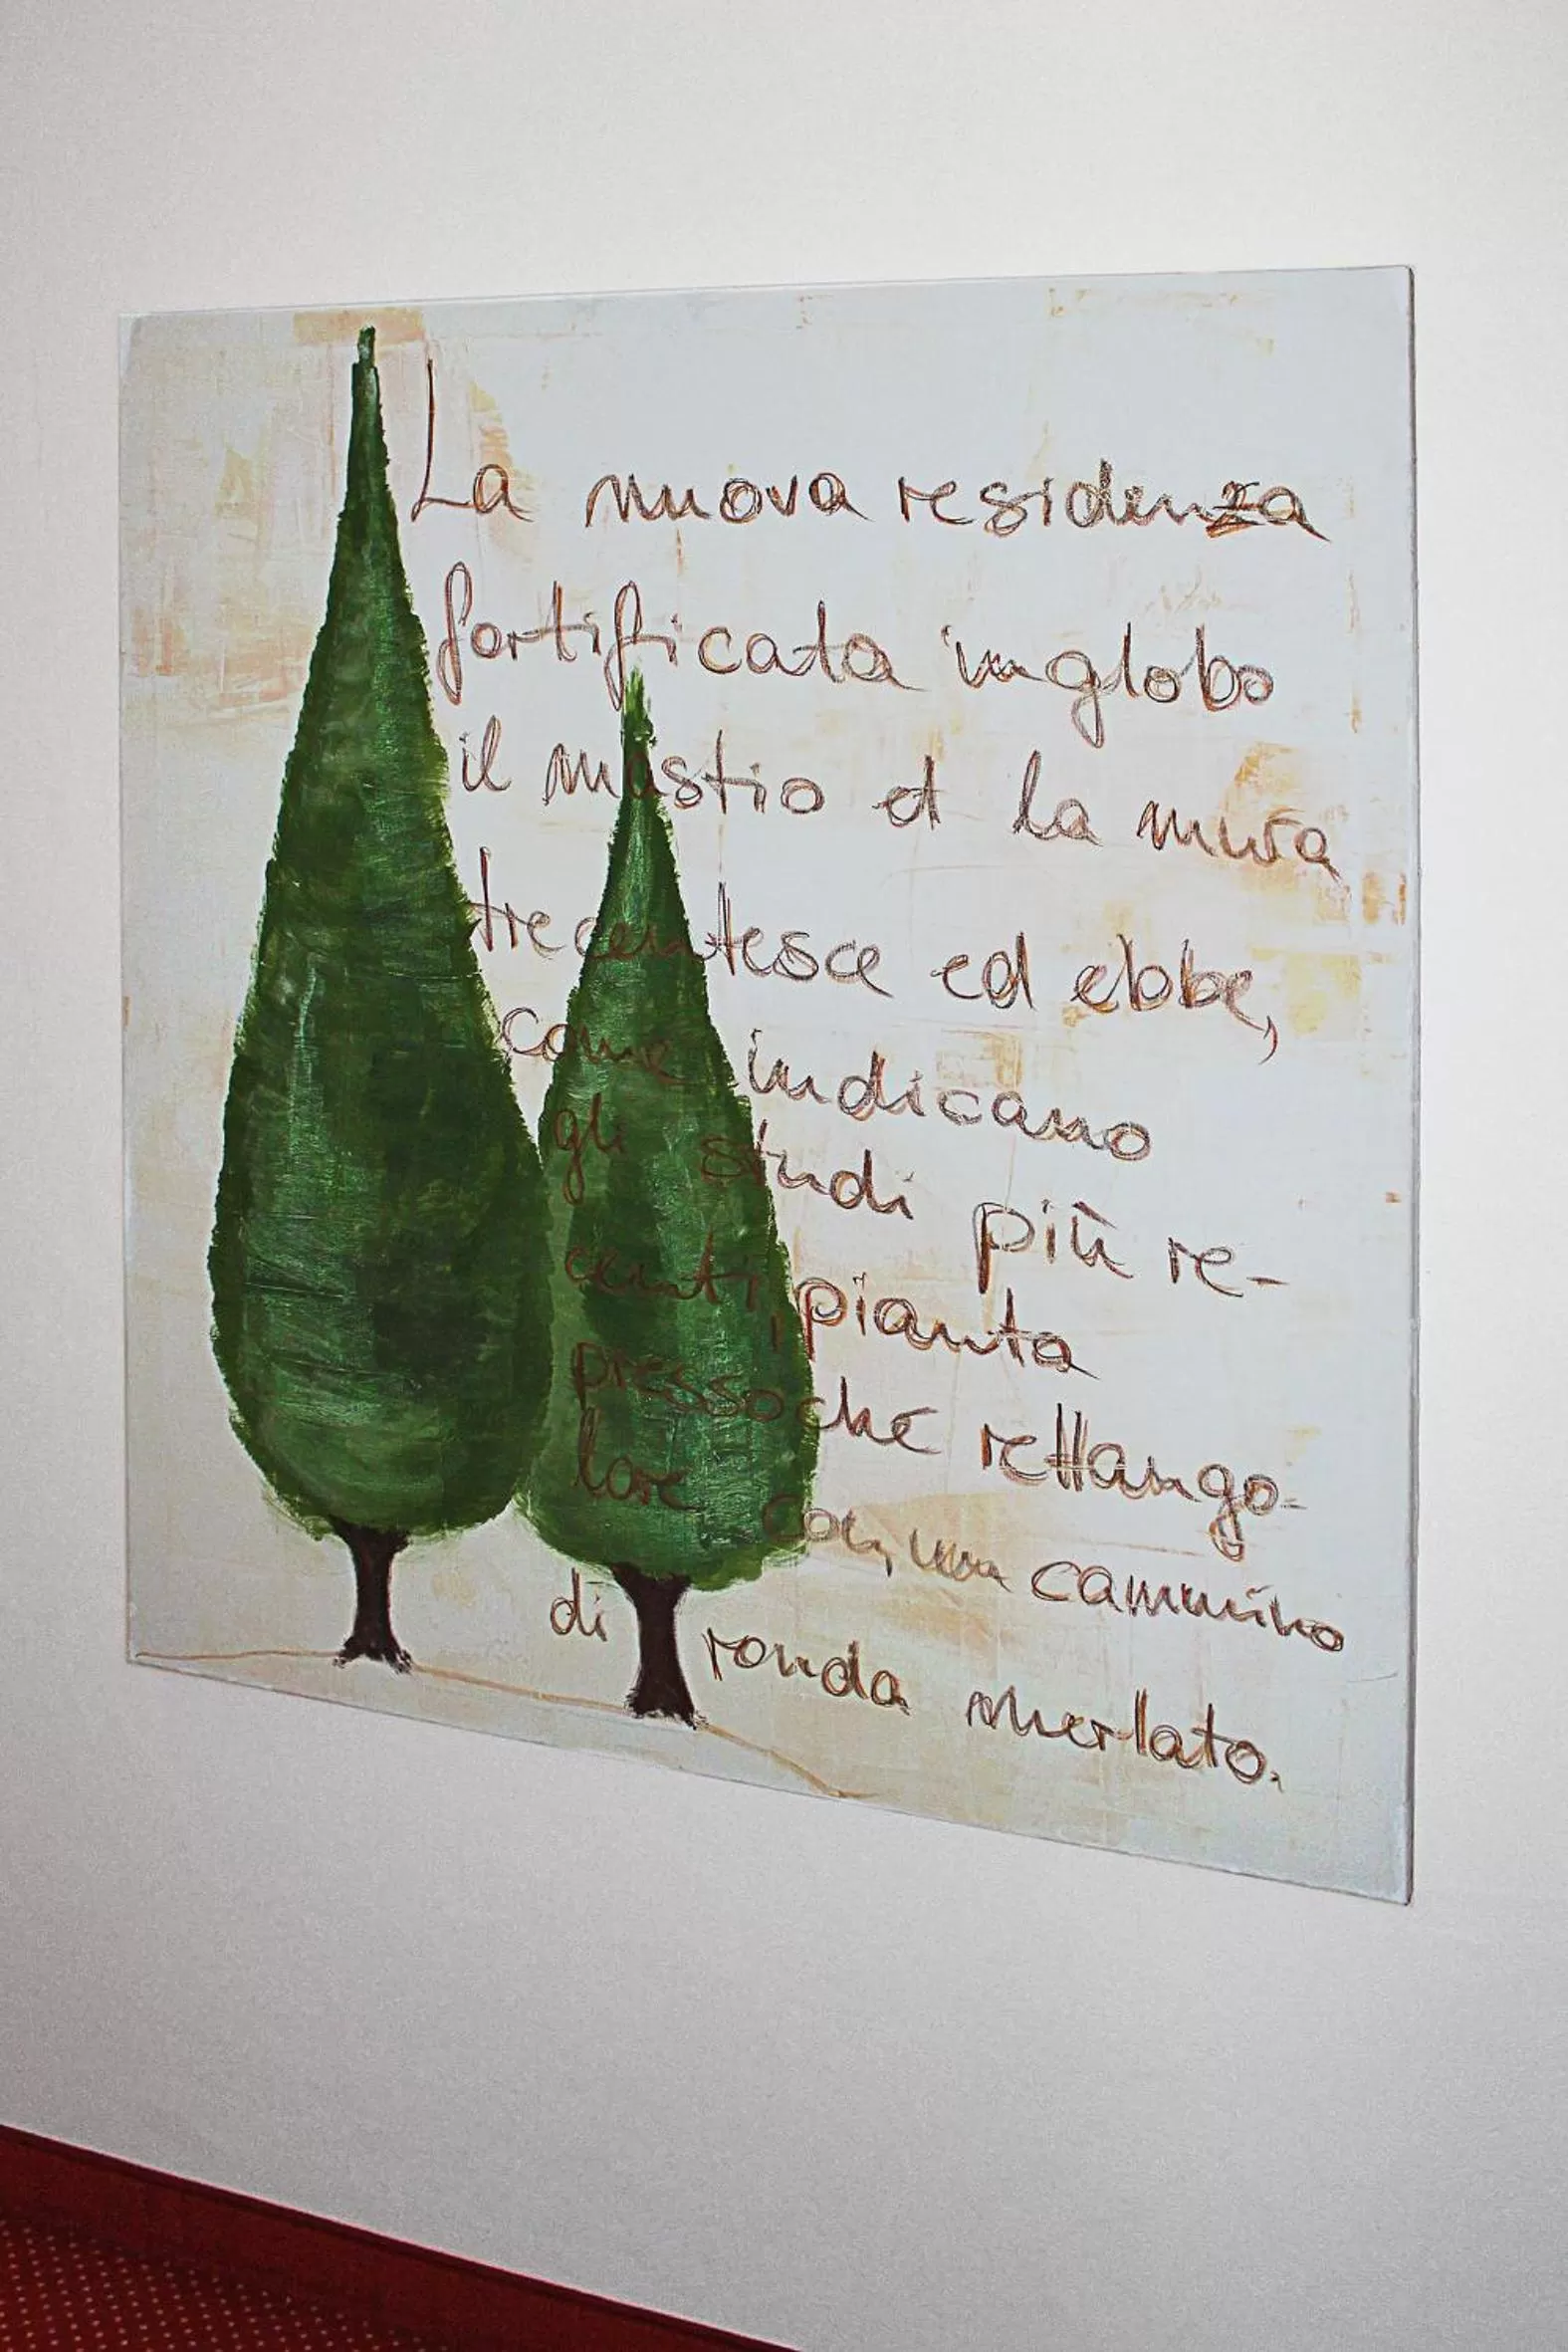 La nuova residenza
fortificata inglobo
il mastio et la mura
trecentesce ed ebbe,
come indicano
gli studi più re-
centi, pianta
pressoché rettango-
lare con, un cammino
di ronda merlato.